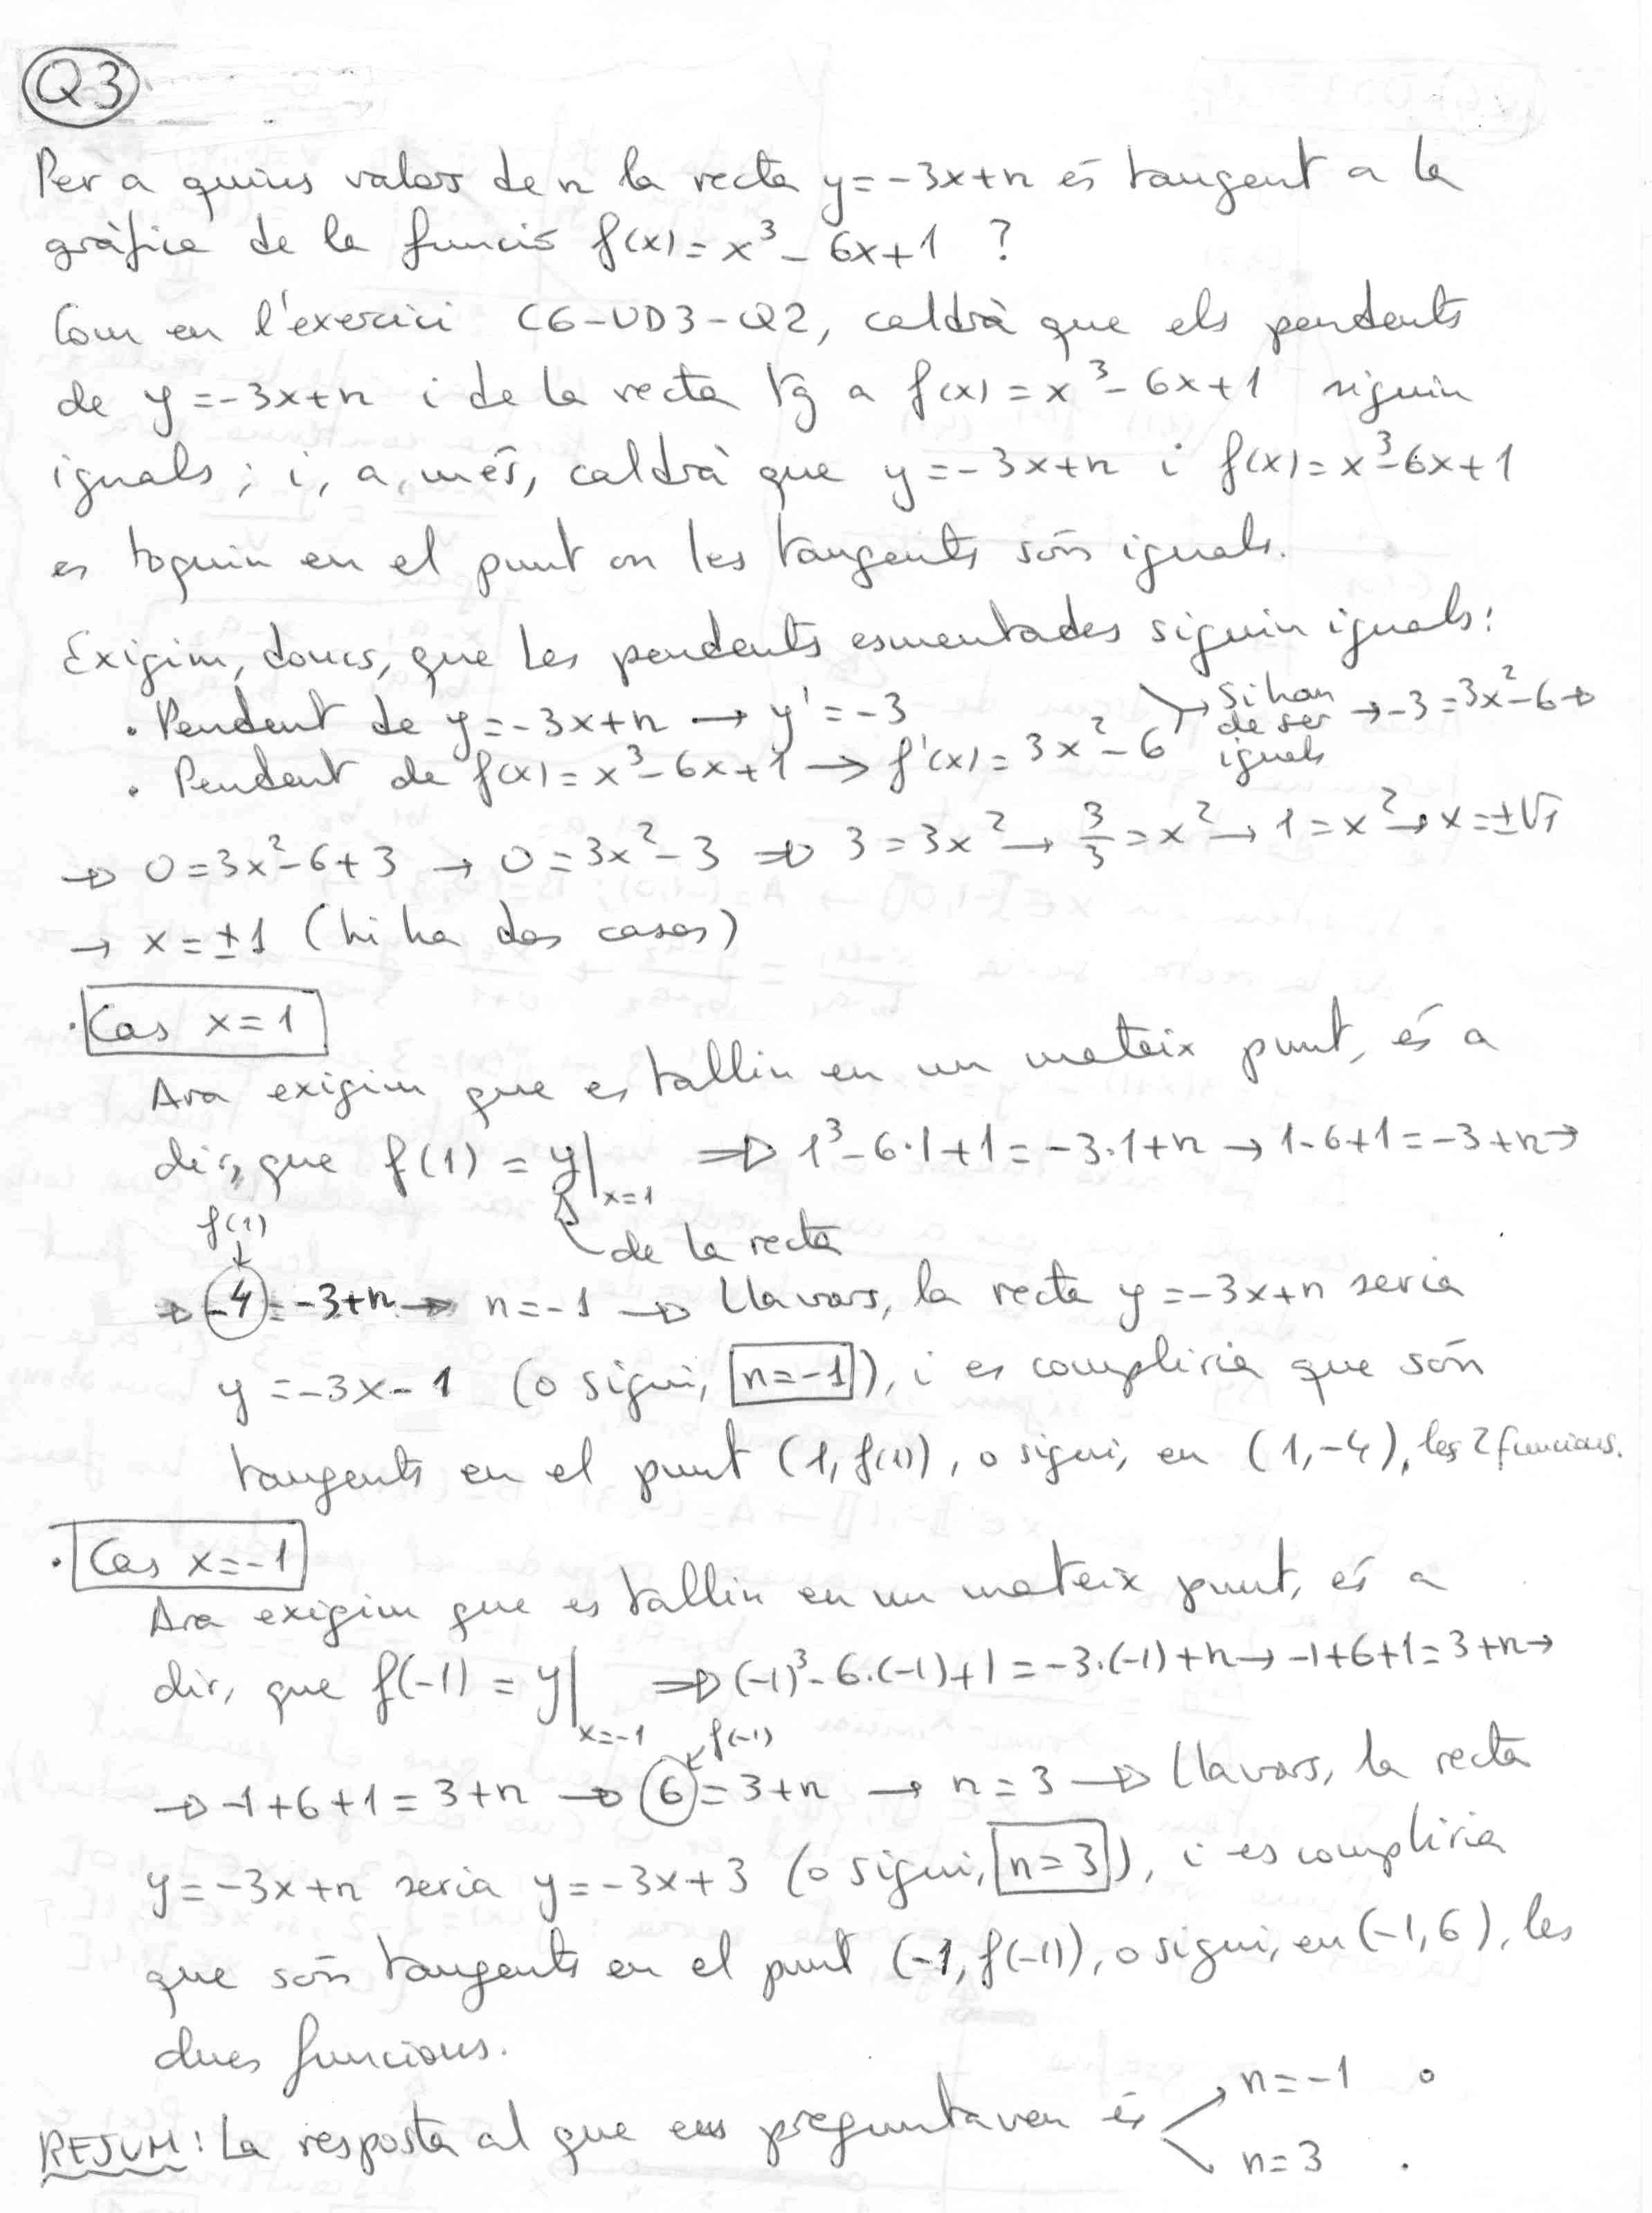 Q3
Per a quins valors de n la recta y=-3x+n és tangent a la
gràfica de la funció f(x)=x³-6x+1 ?
Com en l'exercici C6-UD3-Q2, caldrà que els pendents
de y=-3x+n i de la recta tg a f(x)=x³-6x+1 siguin
iguals; i, a més, caldrà que y=-3x+n i f(x)=x³-6x+1
es toquin en el punt on les tangents són iguals.
Exigim, doncs, que les pendents esmentades siguin iguals:
· Pendent de y=-3x+n → y'=-3
· Pendent de f(x)=x³-6x+1 → f'(x)=3x²-6
Si han de ser iguals → -3=3x²-6 ⇒
⇒ 0=3x²-6+3 → 0=3x²-3 ⇒ 3=3x² → 3/3=x² → 1=x² → x=±√1
→ x=±1 (hi ha dos casos)
· Cas x=1
Ara exigim que es tallin en un mateix punt, és a
dir, que f(1)=y|x=1 ⇒ 1³-6·1+1=-3·1+n → 1-6+1=-3+n →
de la recta
f(1)
⇒ -4=-3+n → n=-1 ⇒ Llavors, la recta y=-3x+n seria
y=-3x-1 (o sigui, n=-1), i es compliria que són
tangents en el punt (1, f(1)), o sigui, en (1,-4), les 2 funcions.
· Cas x=-1
Ara exigim que es tallin en un mateix punt, és a
dir, que f(-1)=y|x=-1 ⇒ (-1)³-6·(-1)+1=-3·(-1)+n → -1+6+1=3+n →
f(-1)
⇒ -1+6+1=3+n ⇒ 6=3+n → n=3 ⇒ Llavors, la recta
y=-3x+n seria y=-3x+3 (o sigui, n=3), i es compliria
que són tangents en el punt (-1, f(-1)), o sigui, en (-1,6), les
dues funcions.
RESUM: La resposta al que ens preguntaven és n=-1 o
n=3 .